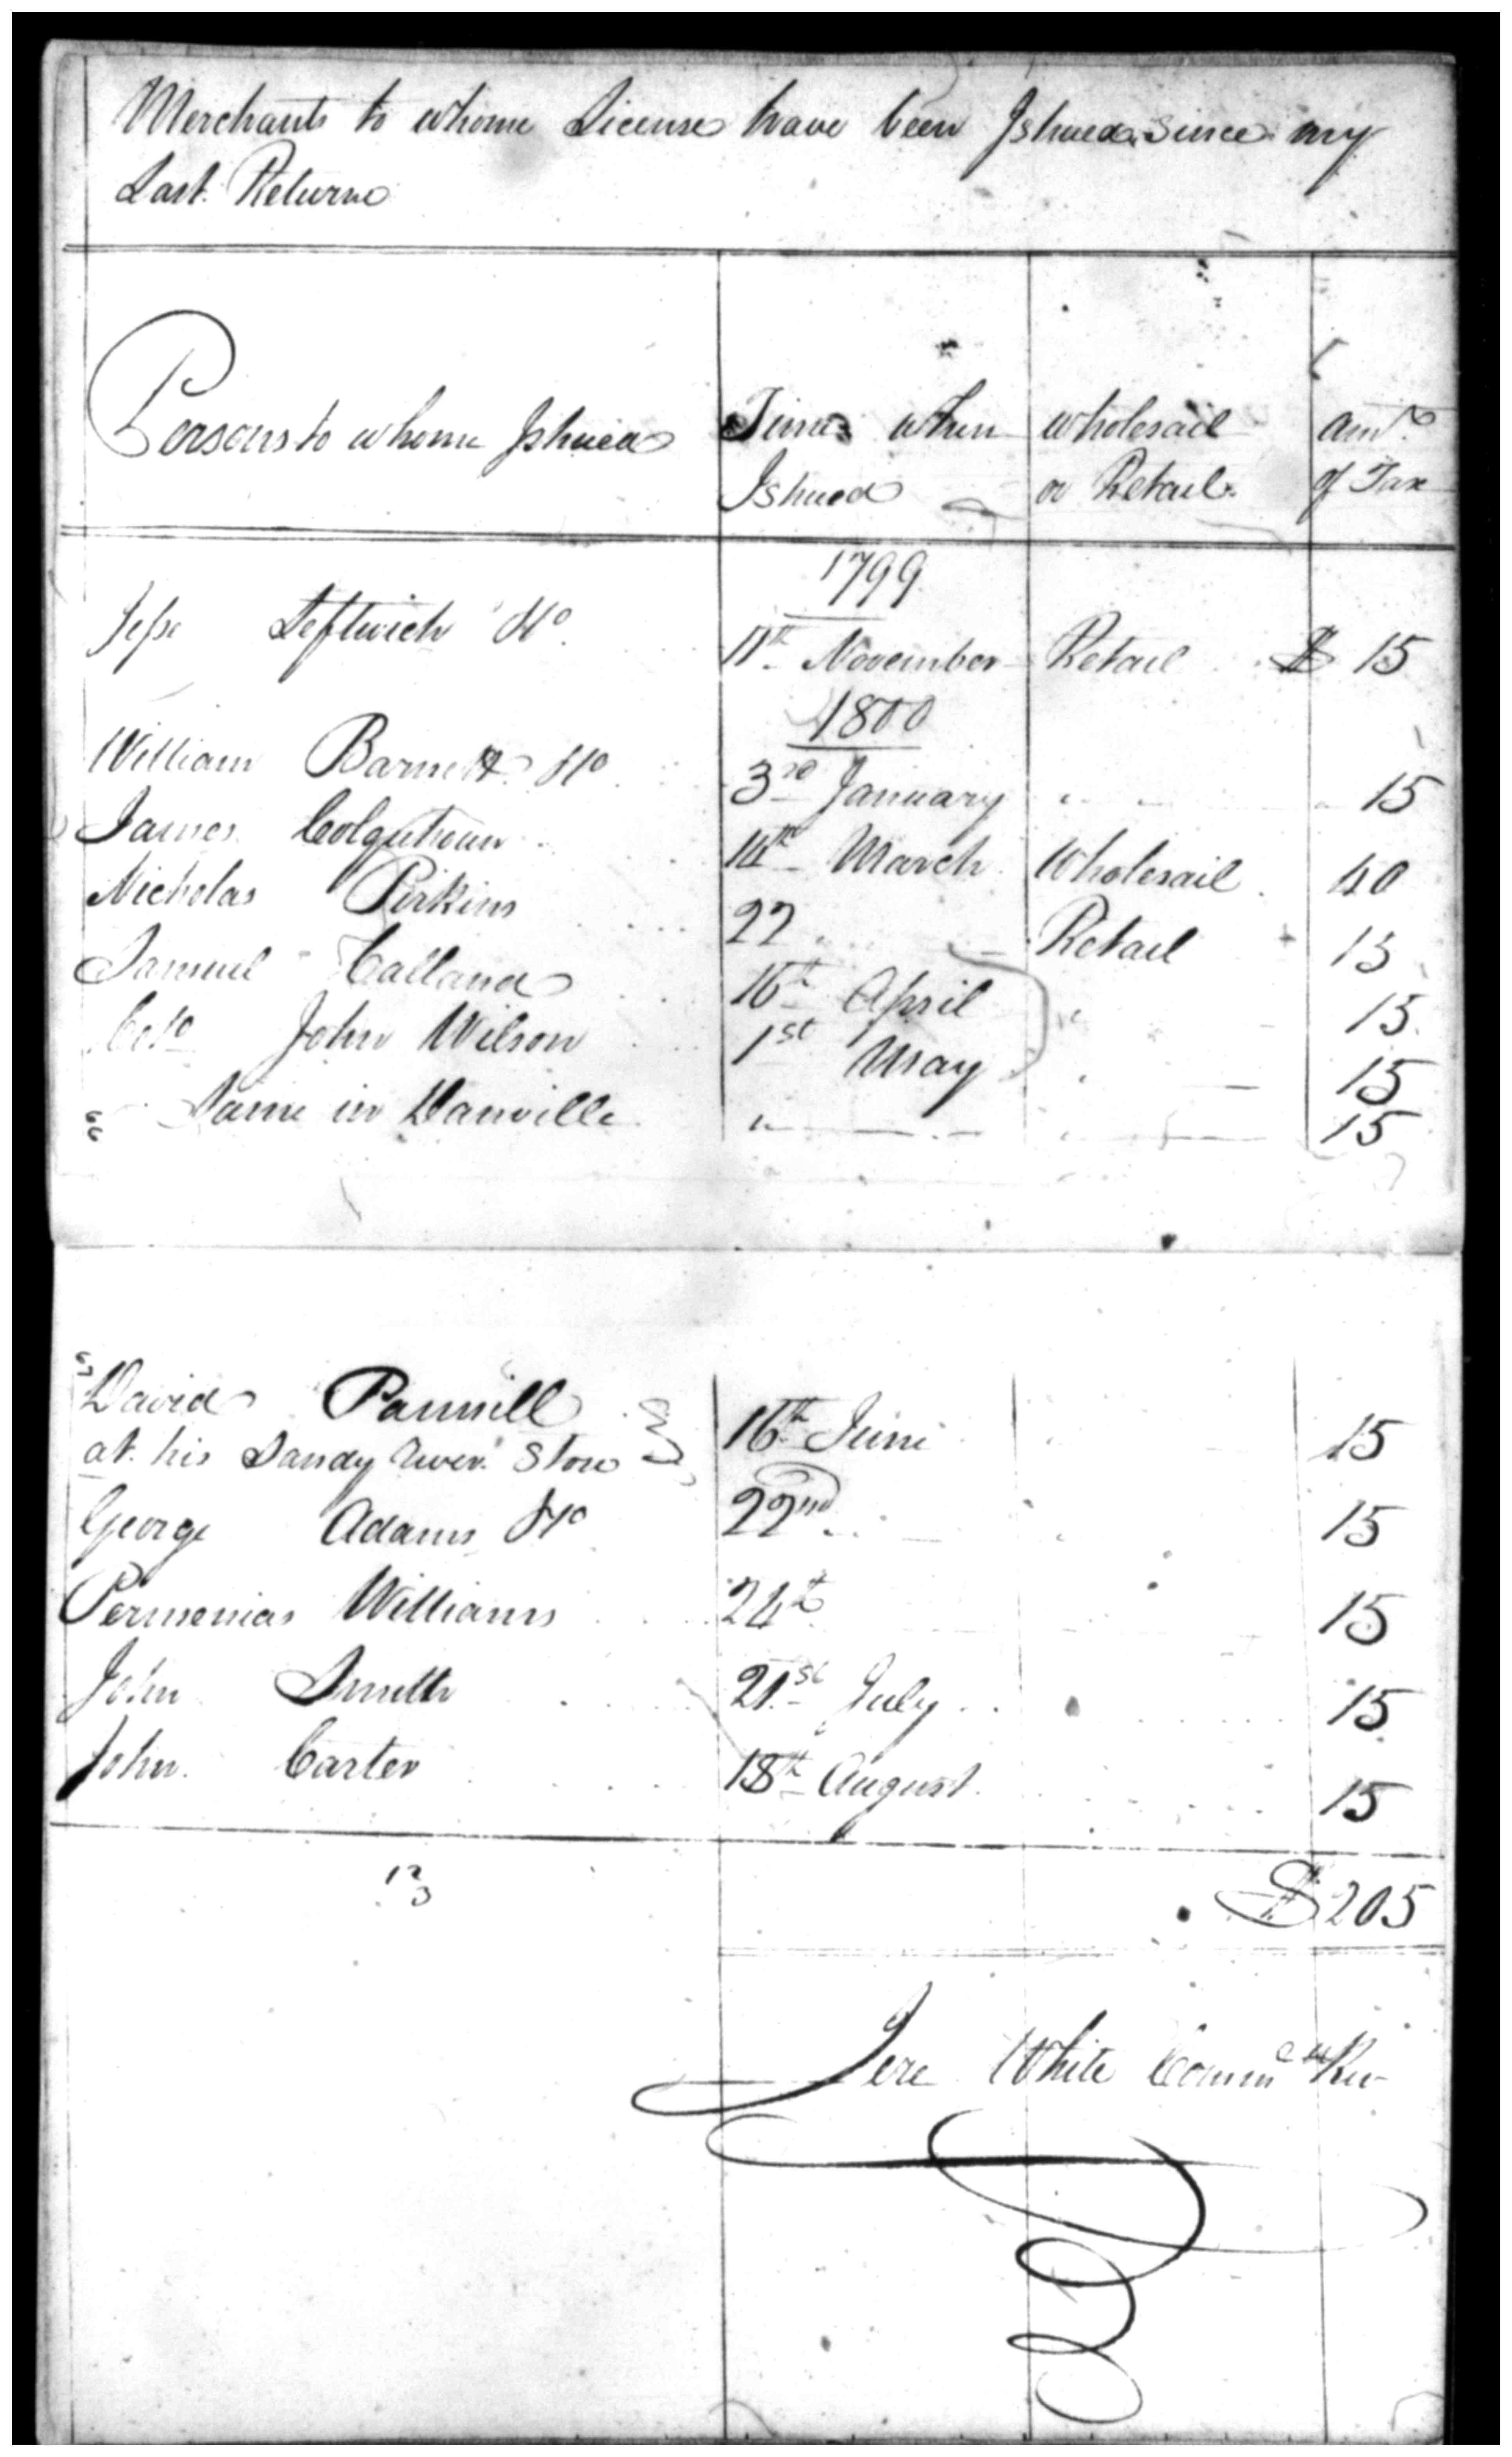 Merchants to whome License have been Ishued Since my
Last Returne
Persons to whome Ishued Time when wholesail amt.
Ishued or Retail. of Tax
1799
Jesse Leftwich 11th November Retail $ 15
1800
William Barnett 3rd January " 15
James Colquhoun 14th March Wholesail 40
Nicholas Perkins 22 Retail 15
Samuel Calland 16th April " 15
Colo John Wilson 1st May " 15
" Same in Danville " " 15
David Pannill 16th June 15
at his Sandy River Store
George Adams 22nd 15
Permenias Williams 24th 15
John Smith 21st July 15
John Carter 18th August 15
13 $ 205
Jere White Comm Rev